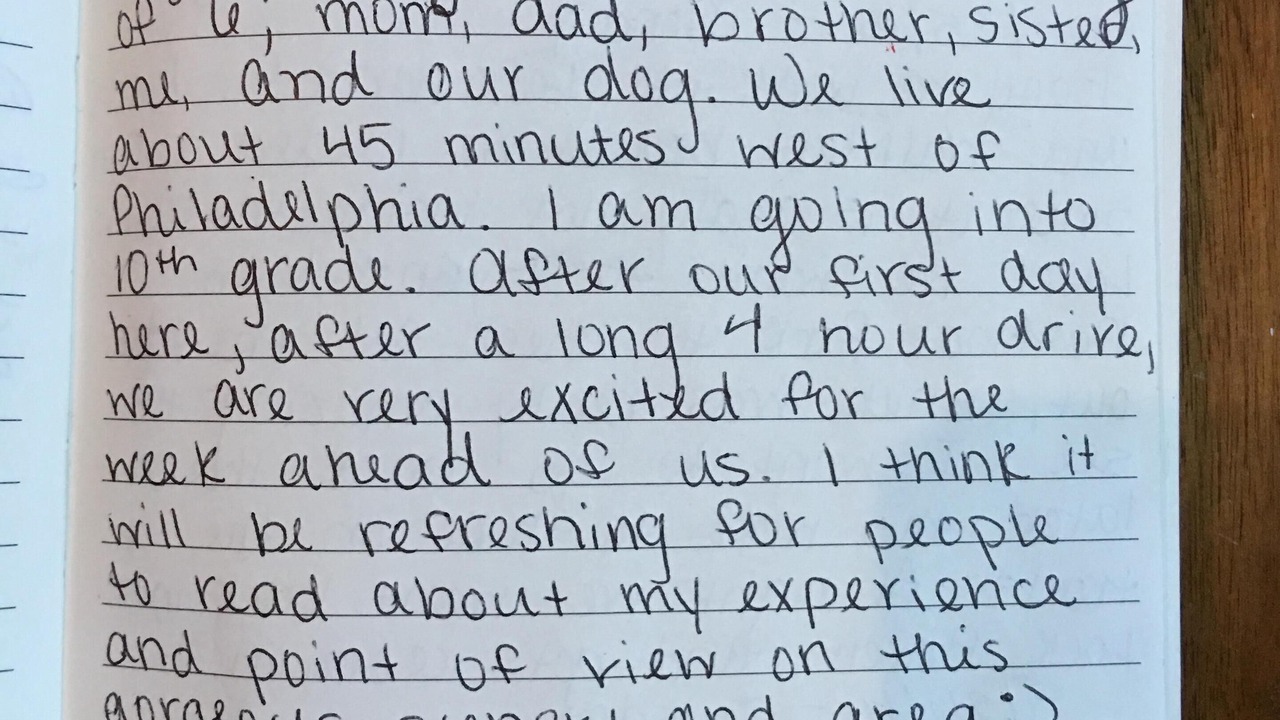 of 6; mom, dad, brother, sister,
me, and our dog. We live
about 45 minutes west of
Philadelphia. I am going into
10th grade. After our first day
here, after a long 4 hour drive,
we are very excited for the
week ahead of us. I think it
will be refreshing for people
to read about my experience
and point of view on this
and area :)